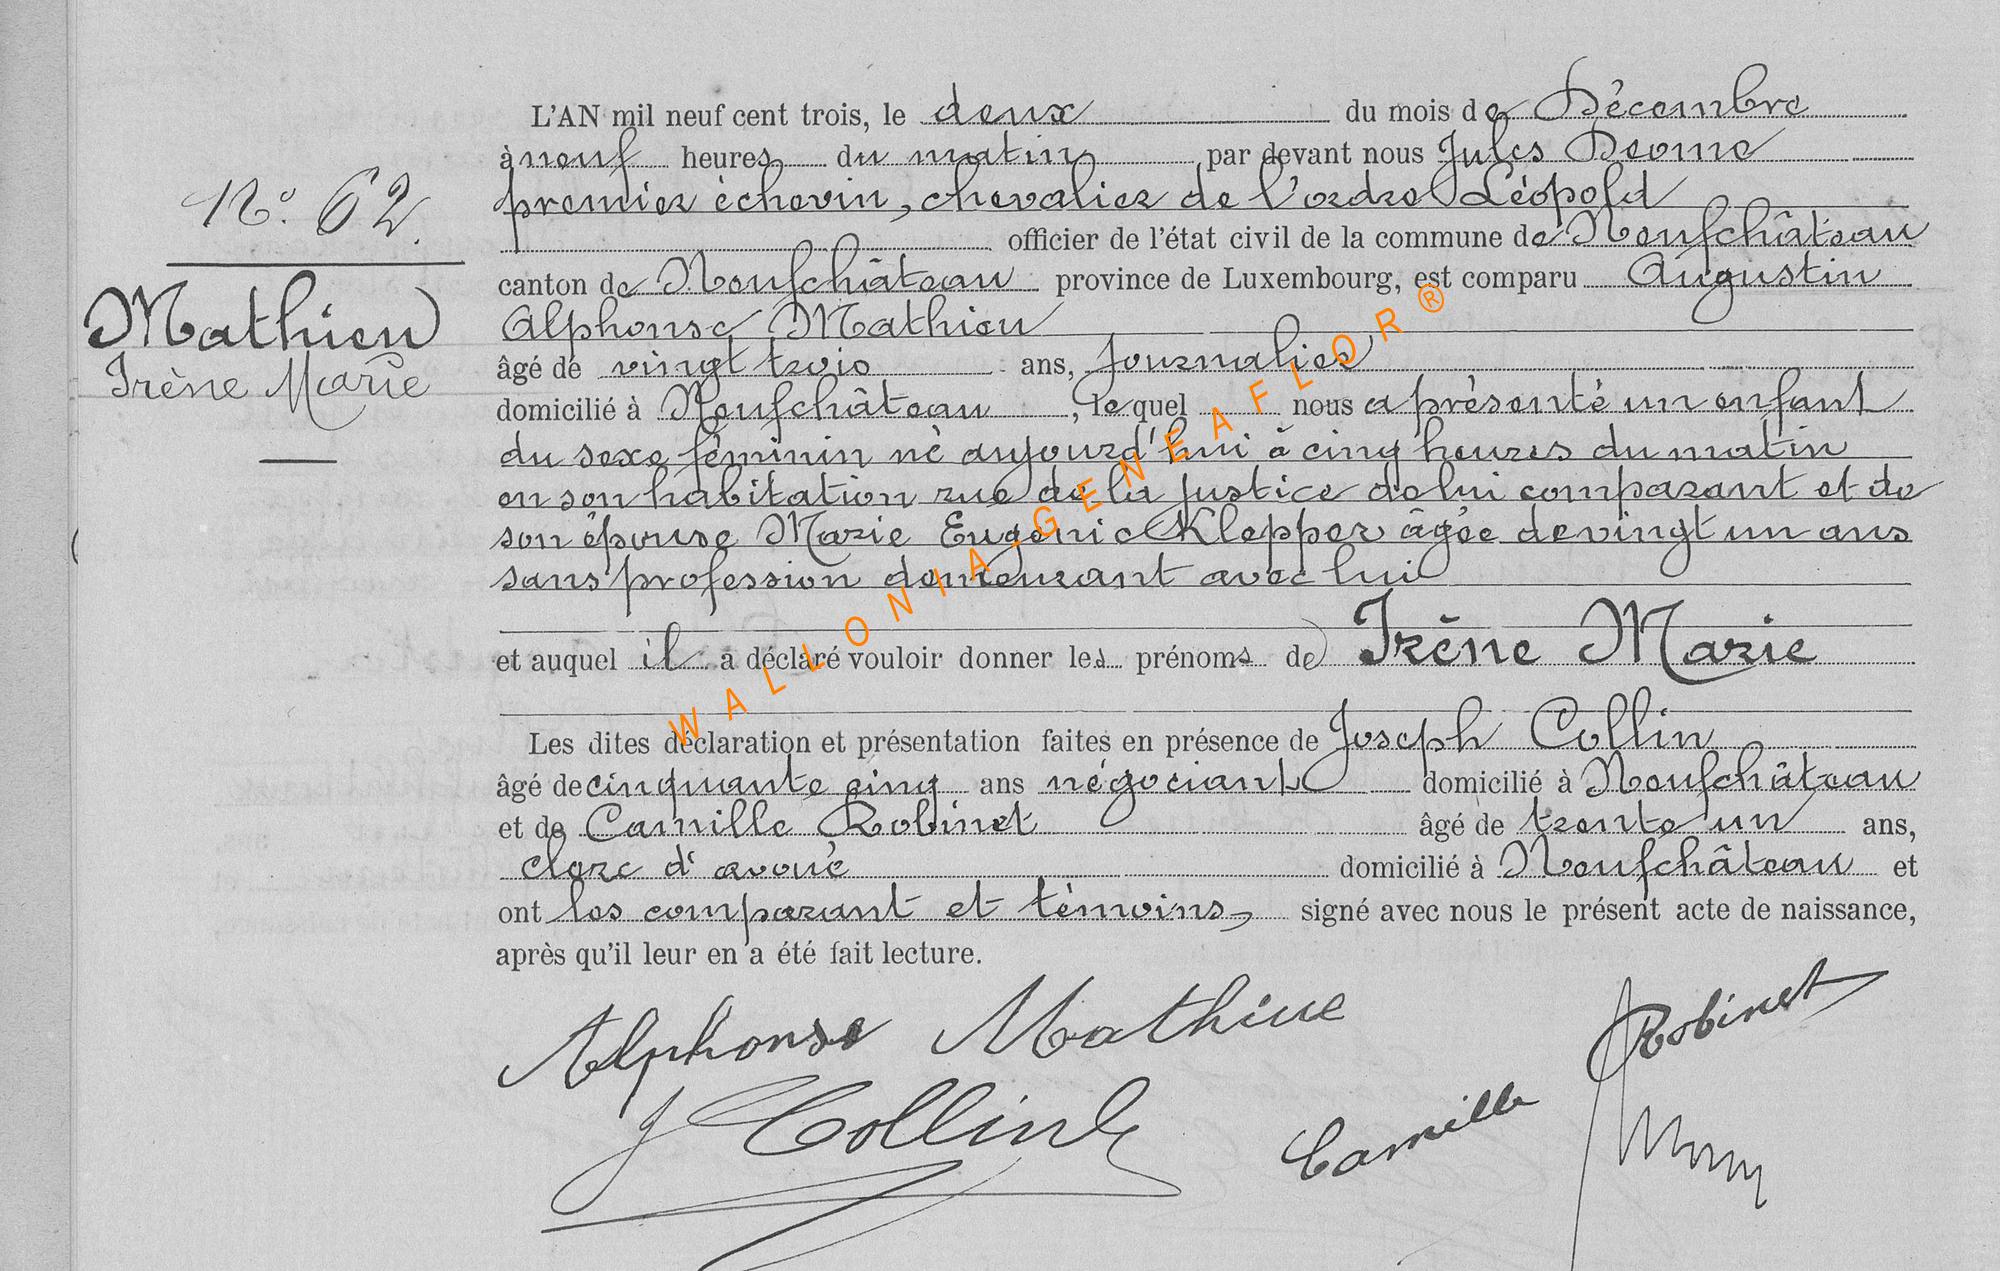 L'AN mil neuf cent trois, le deux du mois de Décembre
à neuf heures du matin par devant nous Jules
premier échevin, chevalier de l'ordre Léopold
officier de l'état civil de la commune de Neufchâteau
canton de Neufchâteau province de Luxembourg, est comparu Augustin
Alphonse Mathieu
âgé de vingt trois ans, journalier
domicilié à Neufchâteau, lequel nous a présenté un enfant
du sexe féminin né aujourd'hui à cinq heures du matin
en son habitation rue de la justice de lui comparant et de
son épouse Marie Eugenie Klepper âgée de vingt un ans
sans profession demeurant avec lui
et auquel il a déclaré vouloir donner les prénoms de Irène Marie
Les dites déclaration et présentation faites en présence de Joseph Collin
âgé de cinquante cinq ans négociant domicilié à Neufchâteau
et de Camille Robinet âgé de trente un ans,
clerc d'avoué domicilié à Neufchâteau et
ont les comparant et témoins, signé avec nous le présent acte de naissance,
après qu'il leur en a été fait lecture.
N° 62.
Mathieu
Irène Marie
Alphonse Mathieu
J Collin
Camille Robinet
WALLONIA-GENEAFLOR®